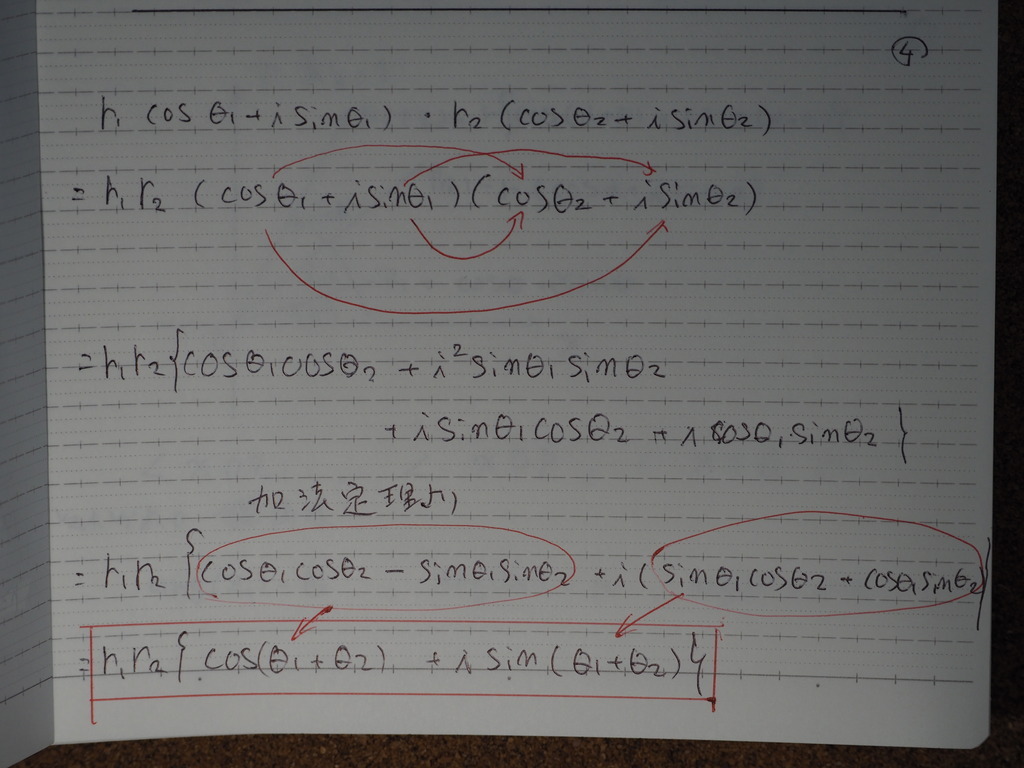 ④
r₁ cosθ₁+i sinθ₁) · r₂ (cosθ₂+ i sinθ₂)
= r₁r₂ (cosθ₁ + i sinθ₁)(cosθ₂ + i sinθ₂)
= r₁r₂{cosθ₁cosθ₂ + i² sinθ₁ sinθ₂
+ i sinθ₁cosθ₂ + i cosθ₁ sinθ₂ }
加法定理より
= r₁r₂ {cosθ₁cosθ₂ - sinθ₁sinθ₂ + i (sinθ₁cosθ₂ + cosθ₁sinθ₂)}
= r₁r₂ { cos(θ₁+θ₂) + i sin (θ₁+θ₂) }